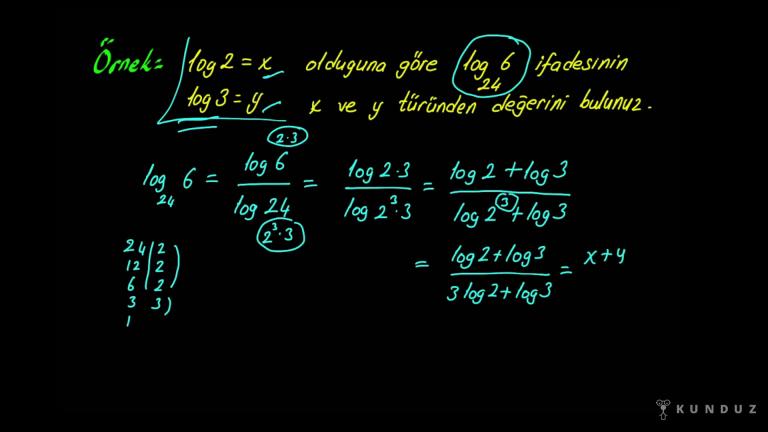 Örnek= log2=x olduguna göre log₂₄6 ifadesinin
log3=y x ve y türünden değerini bulunuz.
2·3
log₂₄6 = log6/log24 = log2·3/log2³·3 = log2+log3/log2³+log3
2³·3
24 2
12 2
6 2
3 3
1
= log2+log3/3log2+log3 = x+y
KUNDUZ